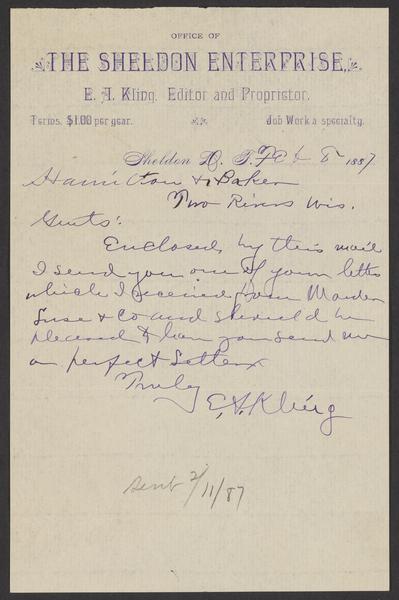 OFFICE OF
THE SHELDON ENTERPRISE,
E. A. Kling, Editor and Proprietor.
Terms, $1.00 per year. Job Work a specialty.
Sheldon D. T. Feb 8 1887
Hamilton & Baker
Two Rivers Wis.
Gents:
Enclosed by this mail
I send you one of your letters
which I received from Marder
Luse & Co and should be
pleased to have you send me
a perfect letter
Truly
E. A. Kling
sent 2/11/87